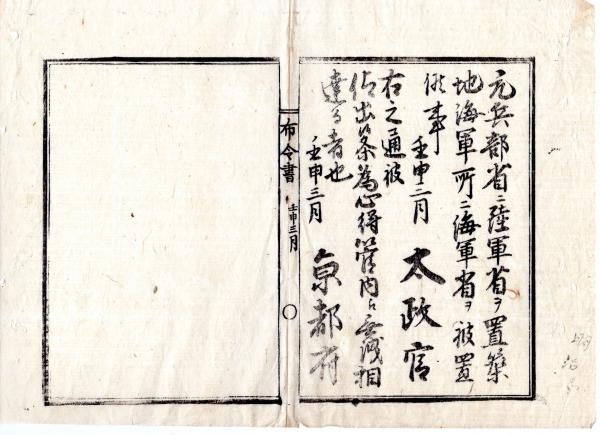 元兵部省ニ陸軍省ヲ置築
地海軍所ニ海軍省ヲ被置
候事
壬申二月 太政官
右之通被
仰出候条為心得管内ヘ無洩相
達る者也
壬申三月 京都府
布令書 壬申三月 〇